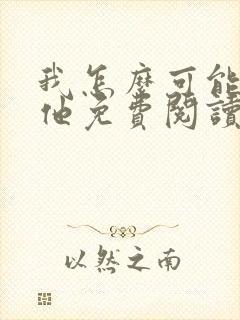 我怎麼可能
他免費閱讀
以然之南